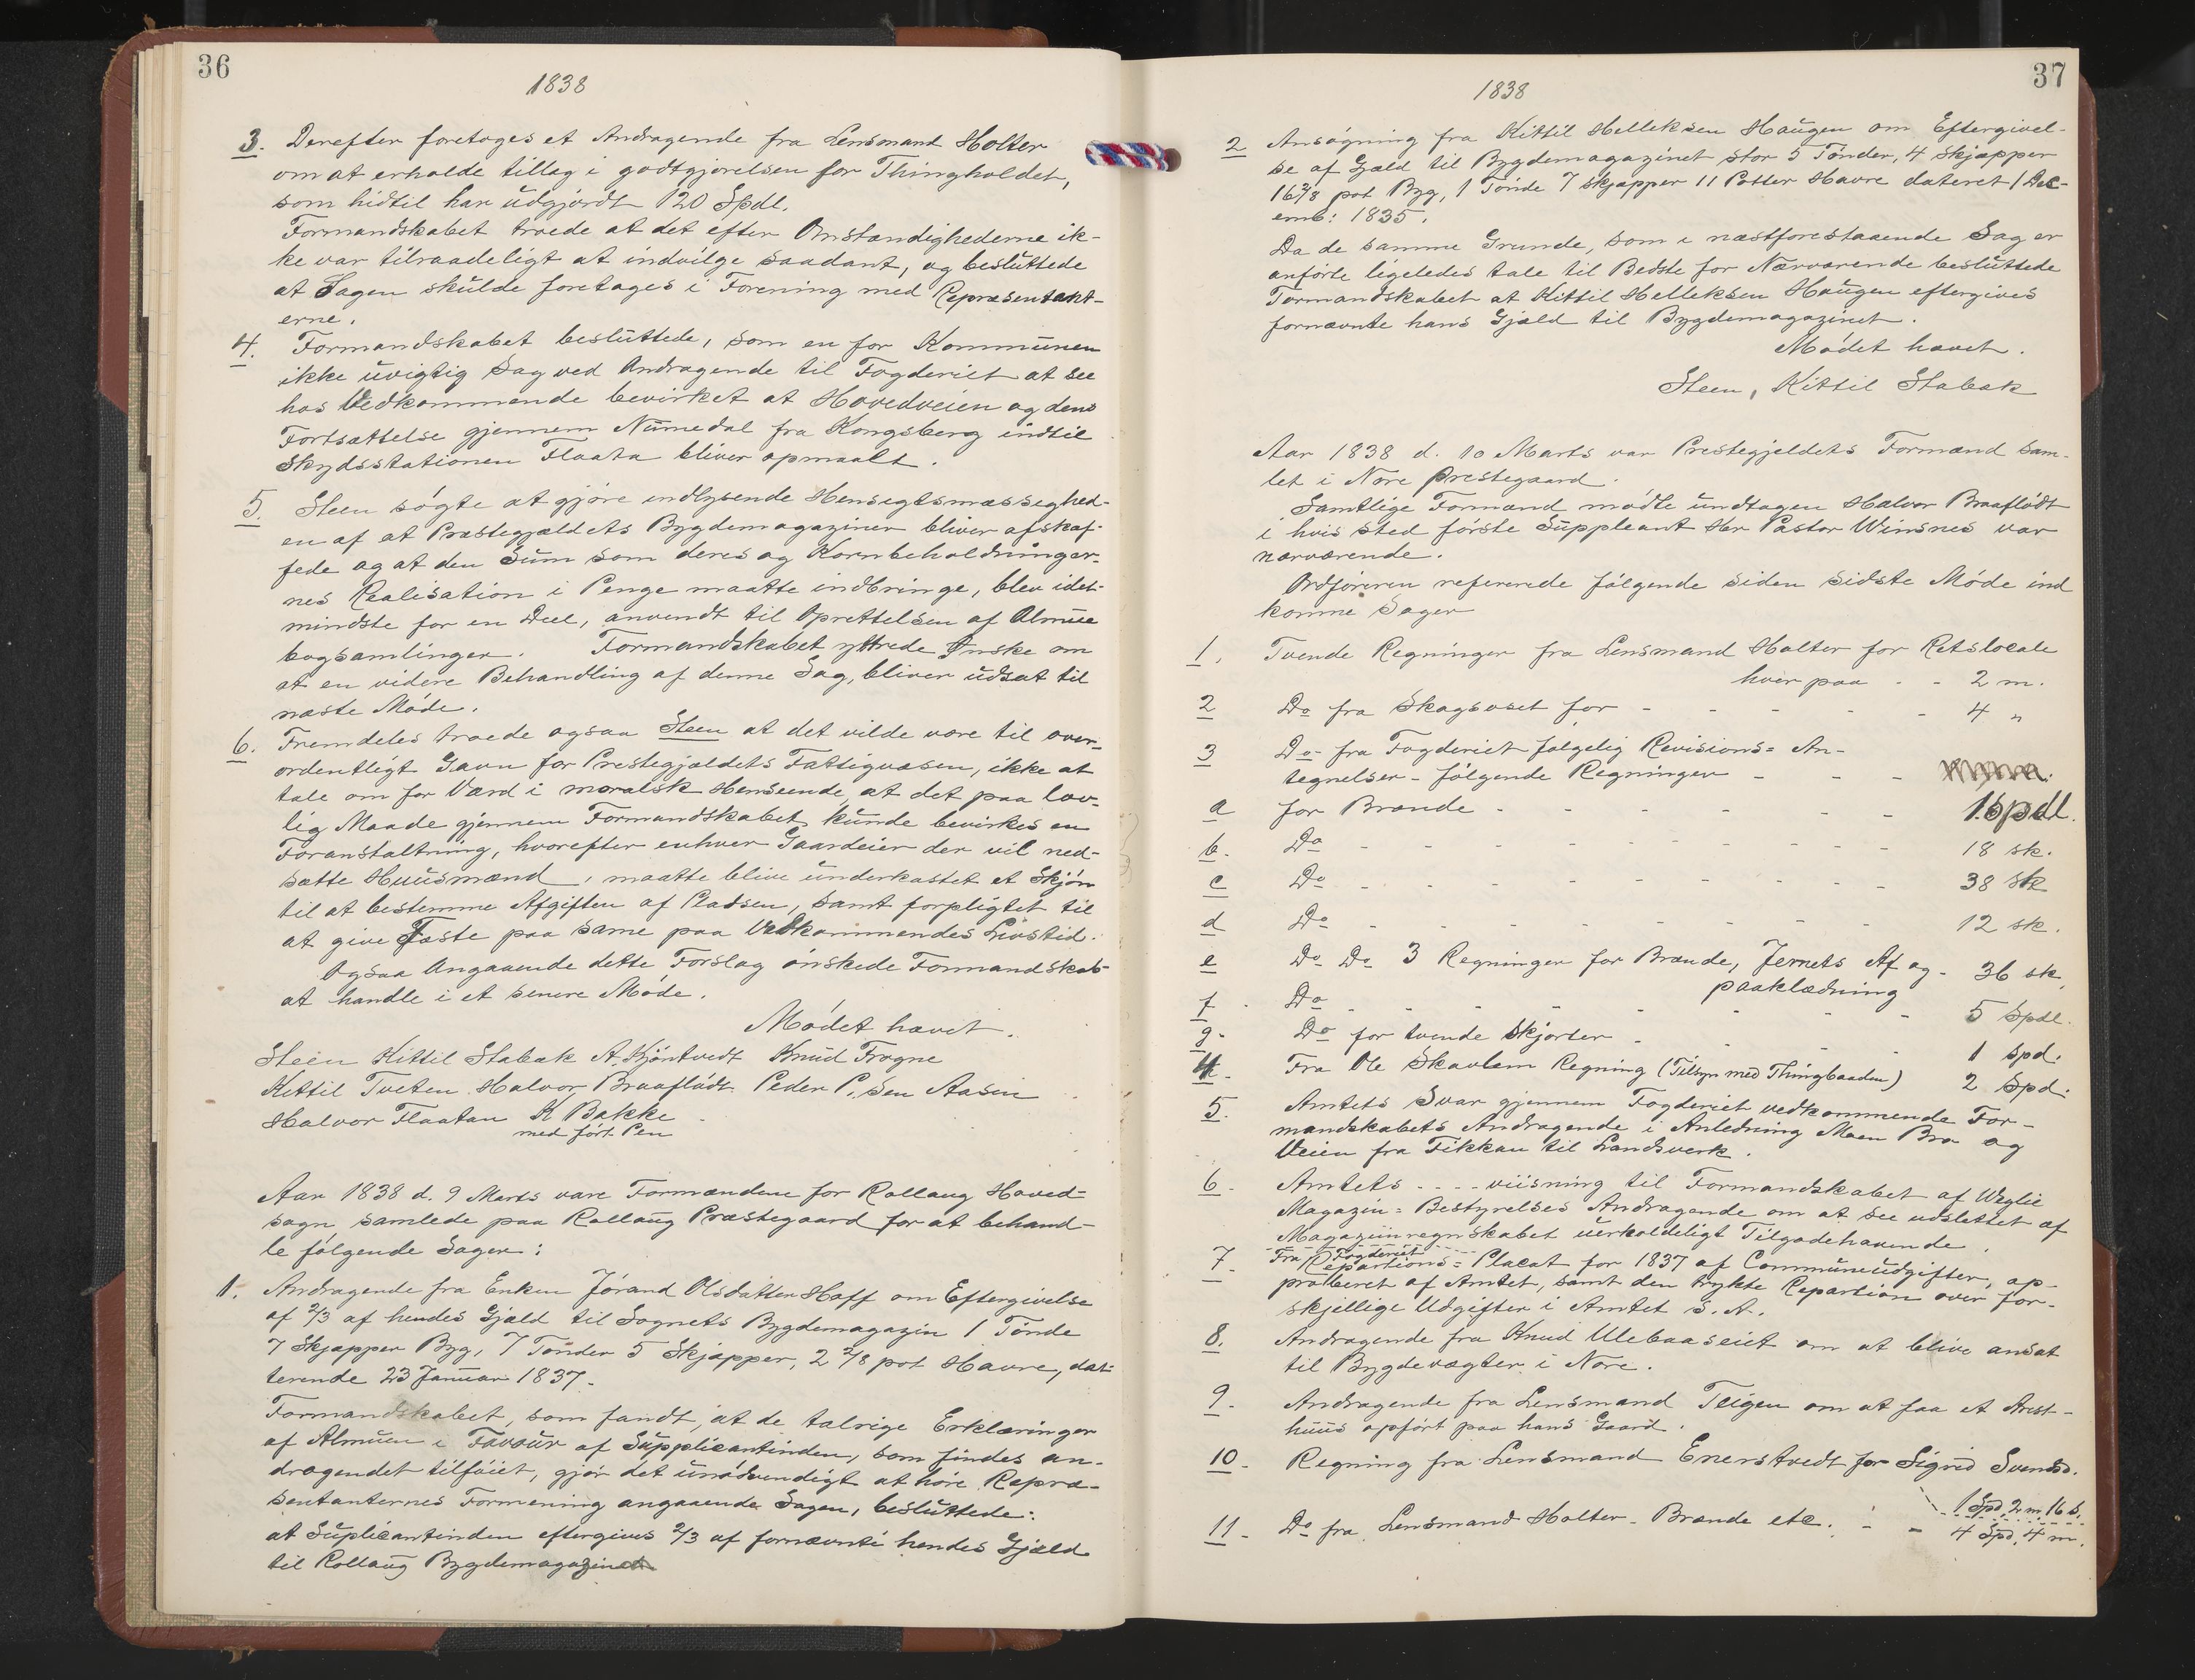 36
1838
3. Derefter foretoges et Andragende fra Lensmand Holter
om at erholde tillæg i godtgjørelsen for Thingholdet,
som hidtil har udgjordt 120 Spdl.
Formandskabet troede at det efter Omstændighederne ik-
ke var tilraadeligt at indvilge saadant, og besluttede
at Sagen skulde foretages i Forening med Repræsentant-
erne.
4. Formandskabet besluttede, som en for Kommunen
ikke uvigtig Sag ved Andragende til Fogderiet at see
hos Vedkommende bevirket at Hovedveien og dens
Fortsættelse gjennem Numedal fra Kongsberg indtil
Skydsstationen Flaata bliver opmaalt.
5. Steen søgte at gjøre indlysende Hensigtsmæssighed-
en af at Præstegjældets Bygdemagaziner bliver afskaf-
fede og at den Sum som deres og Kornbeholdninger-
nes Realisation i Penge maatte indbringe, blev idet-
mindste for en Deel, anvendt til Oprettelsen af Almue
bogsamlinger. Formandskabet yttrede Ønske om
at en videre Behandling af denne Sag, bliver udsat til
næste Møde.
6. Fremdeles troede ogsaa Steen at det vilde være til over-
ordentligt Gavn for Prestegjældets Fattigvæsen, ikke at
tale om for Værd i moralsk Henseende, at det paa lov-
lig Maade gjennem Formandskabet kunde bevirkes en
Foranstaltning, hvorefter enhver Gaardeier der vil ned-
sætte Huusmænd, maatte blive underkastet et Skjøn
til at bestemme Afgiften af Pladsen, samt forpligtet til
at give Fæste paa same paa Vedkommendes Livstid.
Ogsaa Angaaende dette Forslag ønskede Formandskab-
at handle i et senere Møde.
Mødet hævet.
Steen Kittil Stabæk A. Kjøntvedt Knud Frogne
Kittil Tveten Halvor Braaflødt Peder P. Sen Aasen
Halvor Flaatan K Bakke
med ført Pen
Aar 1838 d. 9 Marts vare Formændene for Rollaug Hoved=
sogn samlede paa Rollaug Præstegaard for at behand-
le følgende Sager:
1. Andragende fra Enken Jørand Olsdatter Hoff om Eftergivelse
af 2/3 af hendes Gjæld til Sognets Bygdemagazin 1 Tønde
7 Skjæpper Byg, 7 Tønder 5 Skjæpper, 2 2/8 pot Havre, dat-
terende 23 Januar 1837.
Formandskabet, som fandt, at de talrige Erklæringer
af Almuen i Favour af Supplicantinden, som findes an-
dragendet tilføiet, gjør det unødvendigt at høre Repræ-
sentanternes Formening angaaende Sagen, besluttede:
at Suplicantinden eftergives 2/3 af fornævnte hendes Gjæld
til Rollaug Bygdemagazinet
37
1838
2 Ansøgning fra Kittil Helleksen Haugen om Eftergivel-
se af Gjæld til Bygdemagazinet stor 5 Tønder, 4 Skjæpper
16 3/8 pot Byg, 1 Tønde 7 skjæpper 11 Potter Havre dateret 1 Dec-
emb: 1835.
Da de samme Grunde, som i næstforestaaende Sag er
anførte ligeledes tale til Bedste for Nærværende besluttede
Formandskabet at Kittil Helleksen Haugen eftergives
fornævnte hans Gjæld til Bygdemagazinet.
Mødet hævet.
Steen, Kittil Stabæk
Aar 1838 d. 10 Marts var Prestegjeldets Formænd sam-
let i Nore prestegaard.
Samtlige Formænd mødte undtagen Halvor Braaflødt
i hvis sted første Suppleant Hr Pastor Winsnes var
nærværende.
Ordføreren refererede følgende siden sidste Møde ind
komne Sager
1. Tvende Regninger fra Lensmand Holter for Retslocale
hver paa - - 2 m.
2 Do fra Skogsoset for - - - - - 4 "
3 Do- fra Fogderiet følgelig Revisions= An-
tegnelser - følgende Regninger - - -
a for Brænde - - - - - - 1 Spdl.
b. Do - - - - - - - - - 18 sk.
c Do - - - - - - - - - 38 sk
d Do - - - - - - - - - 12 sk.
e Do Do 3 Regninger for Brænde, Jernets Af og - 36 sk,
paaklædning
f. Do - - - - - - - 5 Spdl.
g- Do for tvende Skjorter - - - - 1 Spd.
4. Fra Ole Skavlem Regning (Tilsyn med Thingbaaden) 2 Spd.
5. Amtets Svar gjennem Fogderiet vedkommende For-
mandskabets Andragende i Anledning Moen Bro og
Veien fra Fikkan til Landsverk.
6. Amtets - - - - viisning til Formandskabet af Weglie
Magazin= Bestyrelses Andragende om at see udslettet af
Magaziinregnskabet uerholdeligt Tilgodehavende.
7. Fra Fogderiet
Repartions= Placat for 1837 af Communeudgifter, ap-
proberet af Amtet, samt den trykte Repartion over for-
skjellige Udgifter i Amtet s. A.
8. Andragende fra Knud Ulebaaseiet om at blive ansat
til Bygdevægter i Nore.
9. Andragende fra Lensmand Teigen om at faa et Arest-
huus opført paa hans Gaard.
10. Regning fra Lensmand Enerstvedt for Sigrid Svendsd.
1 Spd. 2 m. 16 s.
11. Do fra Lensmand Holter - Brænde etc. - - 4 Spd. 4 m.